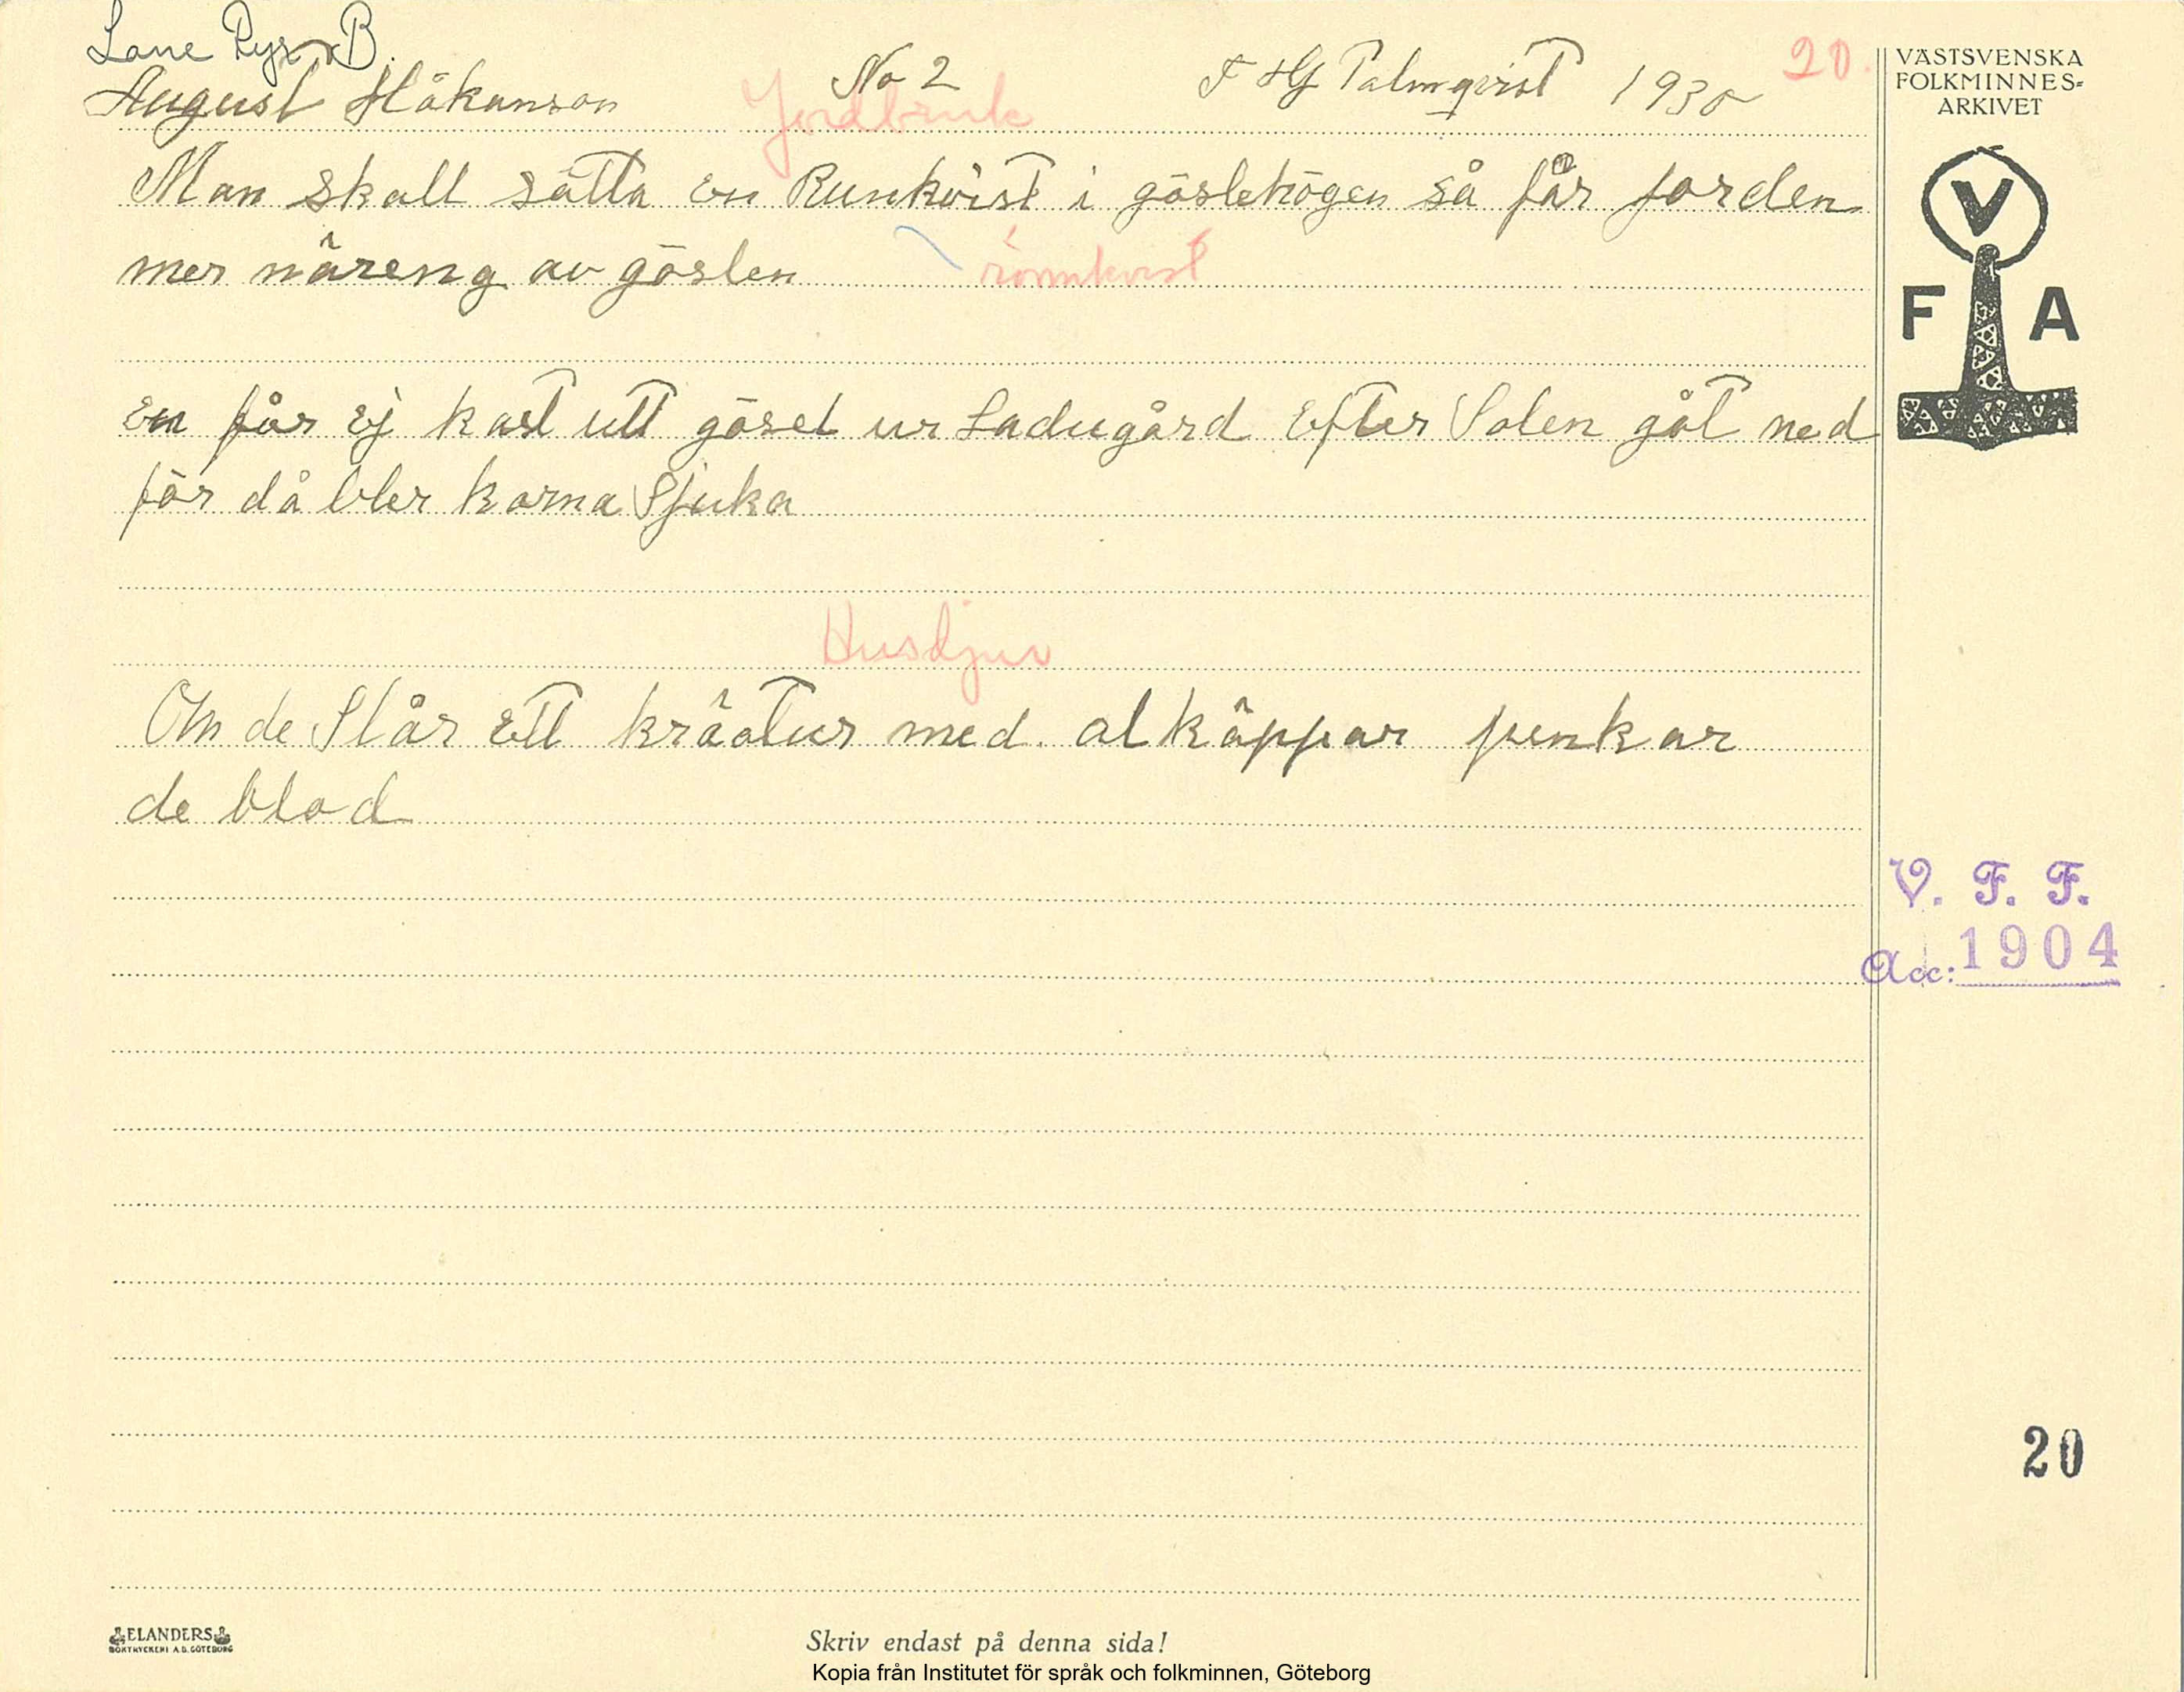 Lane Ryr B.
August Håkanson No 2 F HG Palmqvist 1930 20.
Jordbruk
Man skall sätta en Runkvist i göslehögen så får jorden
mer näreng av göslen rönnkvist
en får ej kast utt gösel ur Ladugård Efter Solen gåt ned
för då bler korna Sjuka
Husdjur
Om de Slår ett kräatur med alkäppar penkar
de blod
VÄSTSVENSKA
FOLKMINNES-
ARKIVET
V
F A
V. F. F.
Acc: 1904
20
ELANDERS
BOKTRYCKERI A.B. GÖTEBORG
Skriv endast på denna sida!
Kopia från Institutet för språk och folkminnen, Göteborg